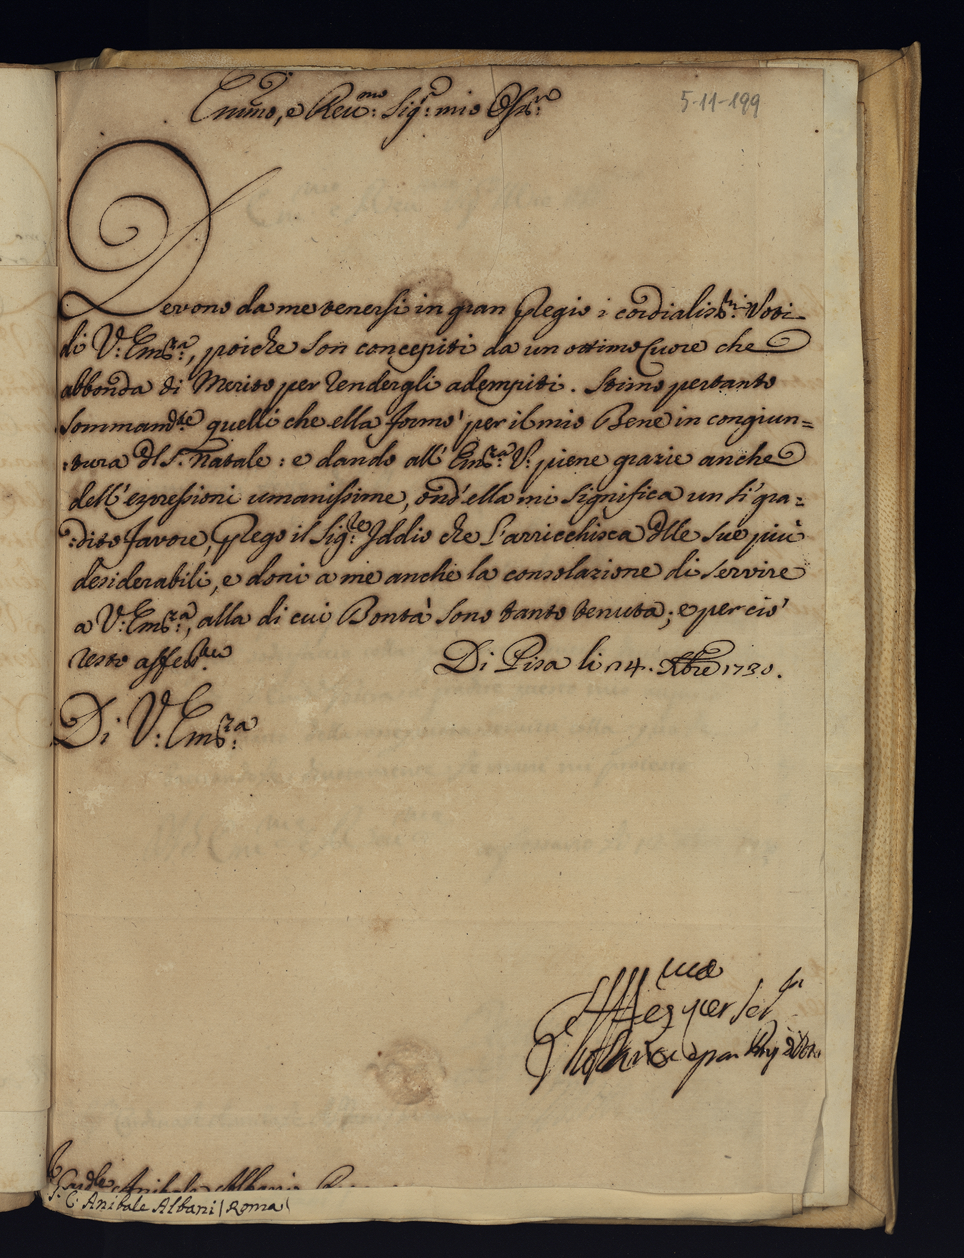 Emmo, e Reumo: Sigr: mio Ossmo:
5-11-199
Devono da me tenersi in gran Pregio i cordialissmi: Voti
di V: Emza:, poiche son concepiti da un ottimo Cuore che
abbonda di Merito per rendergli adempiti. Stimo pertanto
sommamte quelli che ella formò per il mio Bene in congiun=
:tura dl S. Natale: e dando all' Emza: V: piene grazie anche
dell' espressioni umanissime, ond' ella mi significa un sì gra=
:dito favore, Prego il Sigre: Iddio che l'arricchisca dlle sue più
desiderabili, e doni a me anche la consolazione di servire
a V: Emza:, alla di cui Bontà sono tanto tenuta; e perciò
resto affetma:
Di Pisa li 14. Xbre 1730.
Di V: Emza:
Affez per ser
Card:le Anibale Albani Roma
S. C. Anibale Albani (Roma)